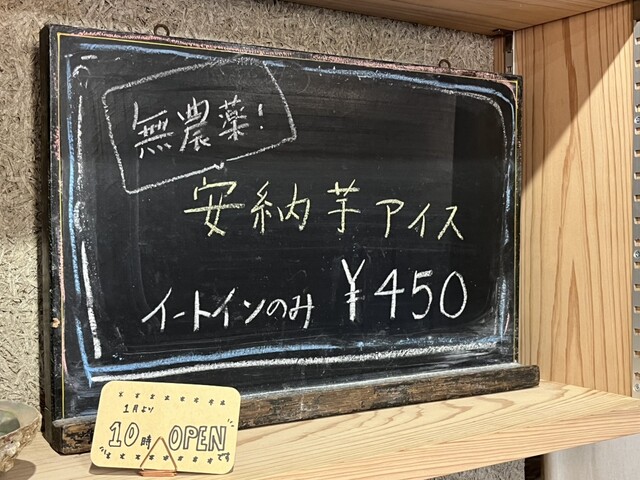 無農薬!
安納芋アイス
イートインのみ ¥450
1月より
10時 OPEN
です